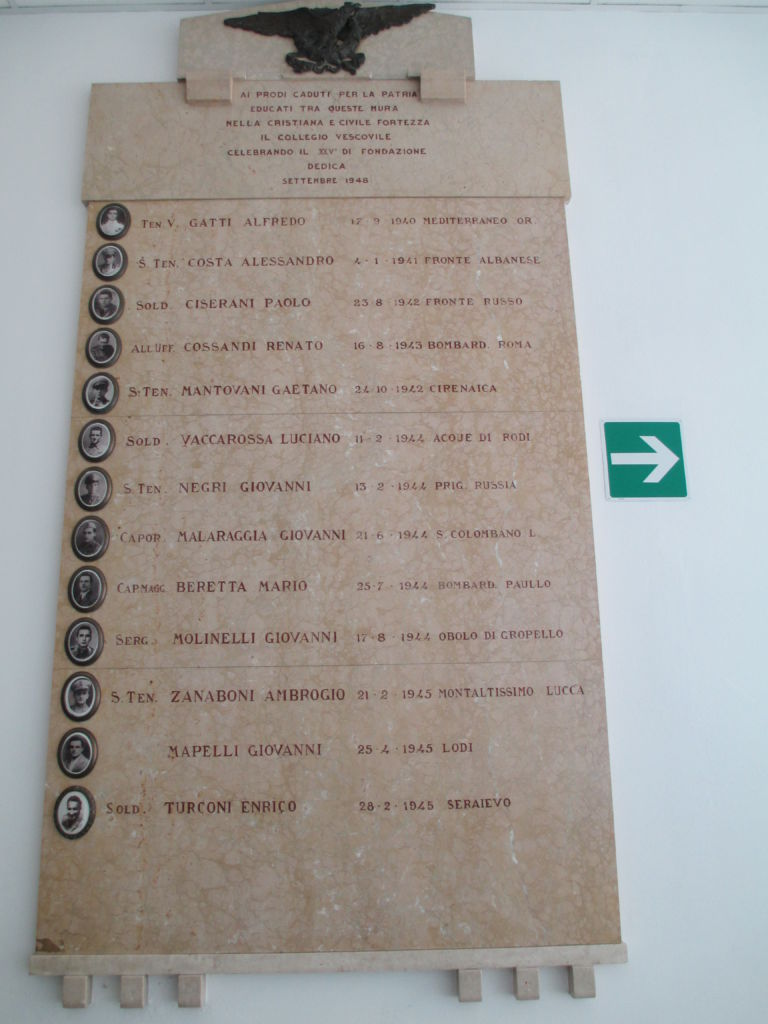 AI PRODI CADUTI PER LA PATRIA
EDUCATI TRA QUESTE MURA
NELLA CRISTIANA E CIVILE FORTEZZA
IL COLLEGIO VESCOVILE
CELEBRANDO IL XXV° DI FONDAZIONE
DEDICA
SETTEMBRE 1948
TEN. V. GATTI ALFREDO 17 · 9 · 1940 MEDITERRANEO OR.
S. TEN. COSTA ALESSANDRO 4 · 1 · 1941 FRONTE ALBANESE
SOLD. CISERANI PAOLO 23 · 8 · 1942 FRONTE RUSSO
ALL. UFF. COSSANDI RENATO 16 · 8 · 1943 BOMBARD. ROMA
S. TEN. MANTOVANI GAETANO 24 · 10 · 1942 CIRENAICA
SOLD. VACCAROSSA LUCIANO 11 · 2 · 1944 ACQUE DI RODI
S. TEN. NEGRI GIOVANNI 13 · 2 · 1944 PRIG. RUSSIA
CAPOR. MALARAGGIA GIOVANNI 21 · 6 · 1944 S. COLOMBANO L.
CAP. MAGG. BERETTA MARIO 25 · 7 · 1944 BOMBARD. PAULLO
SERG. MOLINELLI GIOVANNI 17 · 8 · 1944 OBOLO DI GROPELLO
S. TEN. ZANABONI AMBROGIO 21 · 2 · 1945 MONTALTISSIMO LUCCA
MAPELLI GIOVANNI 25 · 4 · 1945 LODI
SOLD. TURCONI ENRICO 28 · 2 · 1945 SERAIEVO